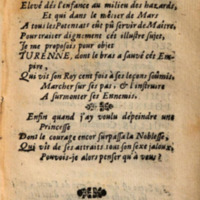 Elevé dés l'enfance au milieu des hazards,
Et qui dans le métier de Mars
A tous les Potentats eût pû servir de Maître,
Pour traiter dignement cet illustre sujet,
Je me proposois pour objet
TURENNE, dont le bras a sauvé cét Em-
pire,
Qui vit son Roy cent fois à ses leçons soûmis,
Marcher sur ses pas, & s'instruire
A surmonter ses Ennemis.
Enfin quand j'ay voulu dépeindre une
Princesse
Dont le courage encor surpassa la Noblesse,
Qui vit de ses attraits tout son sexe jaloux,
Pouvois-je alors penser qu'à vous?